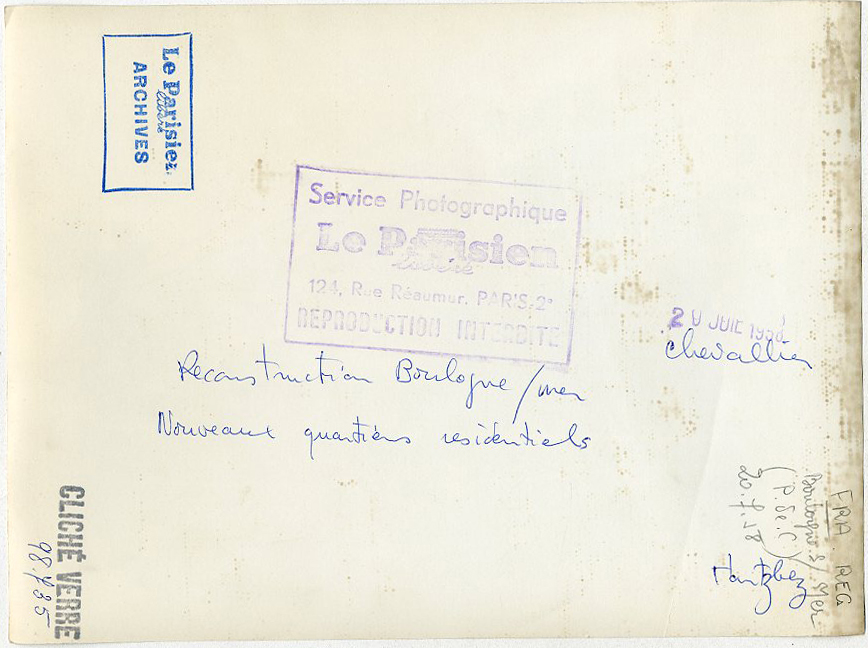 Le Parisien
libéré
ARCHIVES
Service Photographique
Le Parisien
libéré
124, Rue Réaumur. PARIS-2e
REPRODUCTION INTERDITE
chevallier
Reconstruction Boulogne/mer
Nouveaux quartiers residentiels
FRA. REG
Boulogne s/ Mer
(P. de. C.)
CLICHÉ VERRE